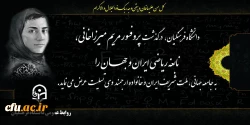 دانشگاه فرهنگیان، درگذشت پروفسور مریم میرزاخانی،
نابغه ریاضی ایران و جهان را
به جامعه جهانی، ملت شریف ایران و خانواده ارجمند وی تسلیت عرض می نماید.
روابط عمومی
cfu.ac.ir